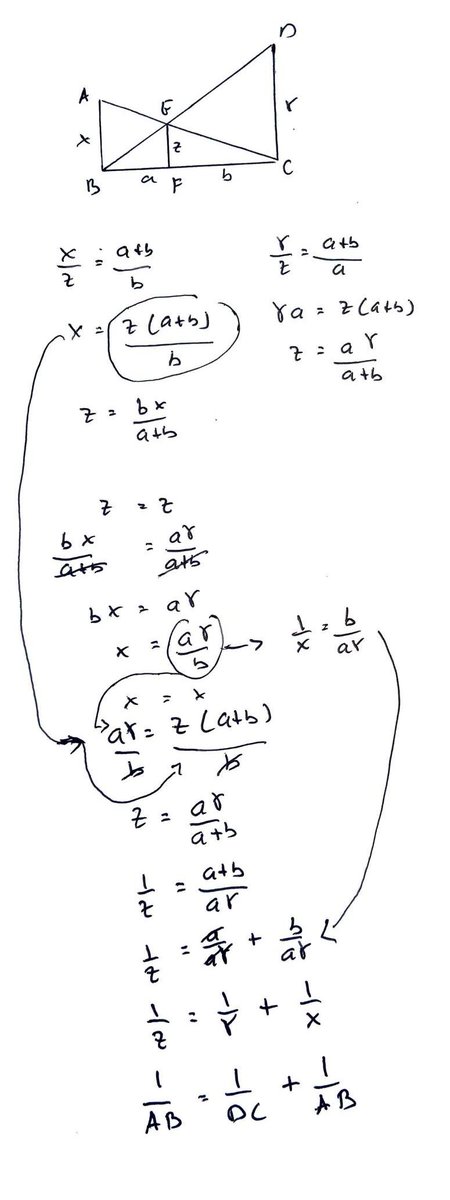 D
A
E
x
z
r
B
a
F
b
C
x/z = a+b/b
r/z = a+b/a
x = z(a+b)/b
ra = z(a+b)
z = bx/a+b
z = ar/a+b
z = z
bx/a+b = ar/a+b
bx = ar
x = ar/b → 1/x = b/ar
x = x
ar/b = z(a+b)/b
z = ar/a+b
1/z = a+b/ar
1/z = a/ar + b/ar
1/z = 1/r + 1/x
1/AB = 1/DC + 1/AB